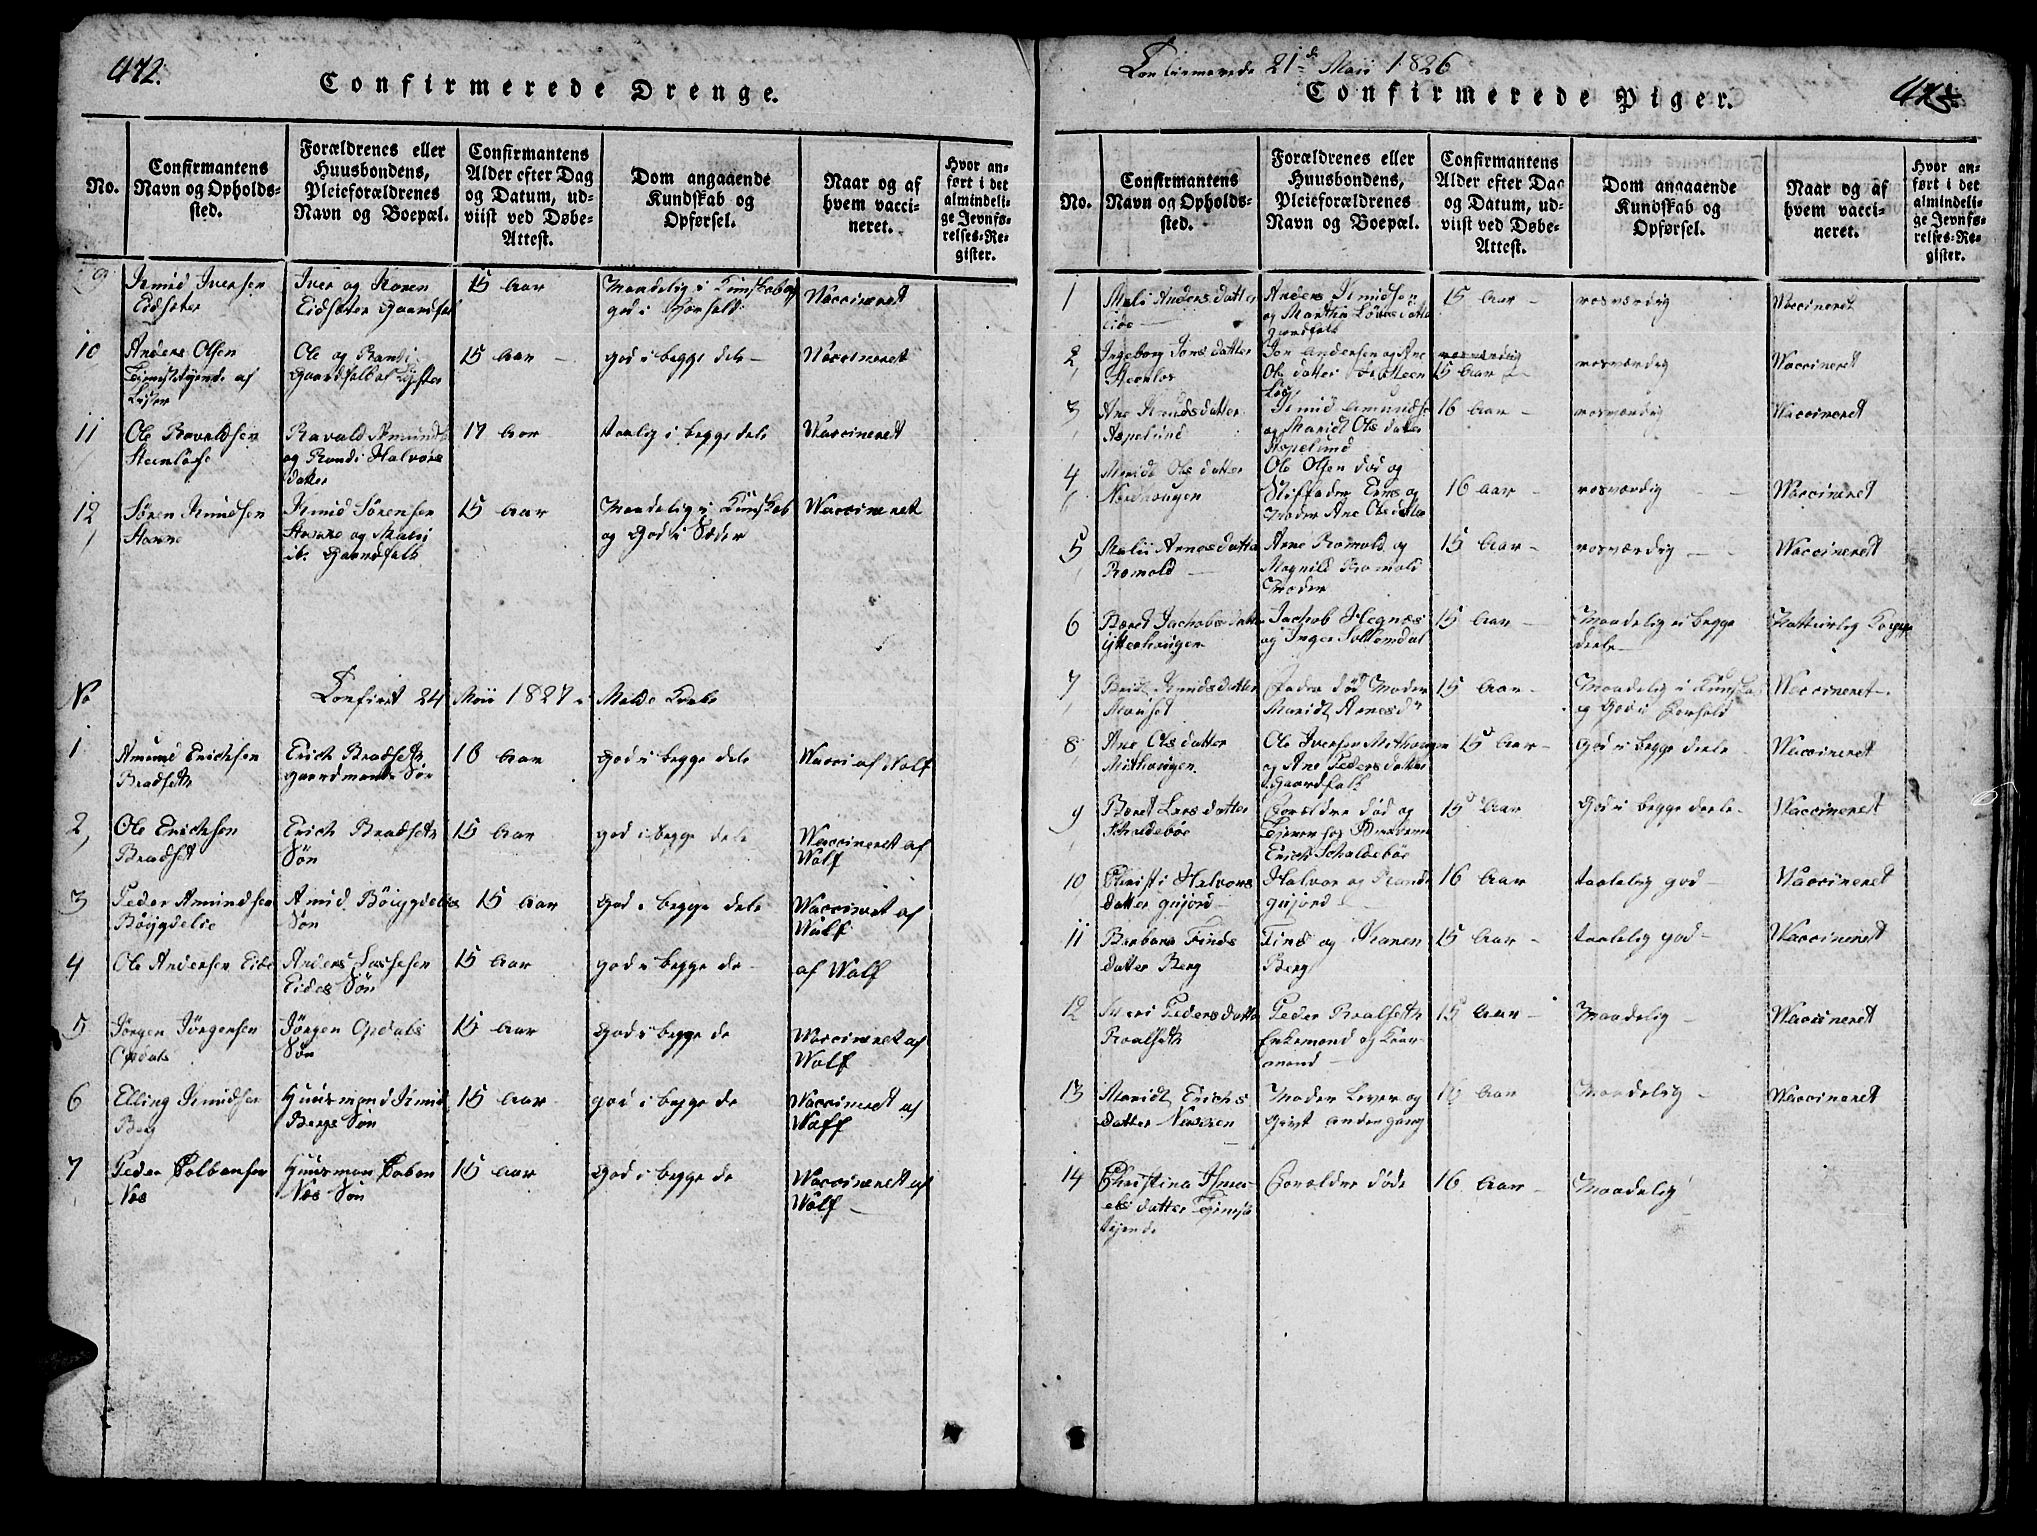 472.
Confirmerede Drenge.
No.
Confirmantens
Navn og Opholds-
sted.
Forældrenes eller
Huusbondens,
Pleieforældrenes
Navn og Boepæl.
Confirmantens
Alder efter Dag
og Datum, ud-
viist ved Døbe-
Attest.
Dom angaaende
Kundskab og
Opførsel.
Naar og af
hvem vacci-
neret.
Hvor an-
ført i det
almindeli-
ge Jevnfø-
relses-Re-
gister.
9
Knud Iversen
Eidsæter
Iver og Karen
Eidsæter Gaardfolk
15 Aar
Maadelig i Kunskab og
god i Forhold
Vaccineret
10
Anders Olsen
Ole og Randi
15 Aar
god i begge dele
Vaccineret
11
Ole Ravaldsen
Steenløse
Ravald Amunds
og Randi Halvors
datter
17 Aar
taalig i begge dele
Vaccineret
12
Søren Knudsen
Knud Sørensen
og Malii
ib. Gaardfolk
15 Aar
Maadelig i Kunskab
og God i Sæder
Vaccineret
No
Confiret 24 Maii 1827 i Molde Kirke
1
Amund Erichsen
Bradseth
Erich Bradseth
gaardmands Søn
16 Aar
god i begge dele
Vacci af Wolf
2
Ole Erichsen
Bradset
Erich Bradseth
Søn
15 Aar
god i begge dele
Vaccineret af
Wolf
3
Peder Amundsen
Böygdelie
Amund Böigdelies
Søn
15 Aar
god i begge dele
Vaccineret af
Wolf
4
Ole Andersen Eide
Anders Lassesen
Eides Søn
15 Aar
god i begge de
af Wolf
5
Jørgen Jørgensen
Opdals
Jørgen Opdals
Søn
15 Aar
God i begge de
Vaccineret af
Wolf
6
Elling Knudsen
Berg
Huusmand Knud
Bergs Søn
15 Aar
god i begge de
Vaccineret af
Wolf
7
Peder
Næs
Huusman
Næs Søn
15 Aar
God i begge de
Vaccineret af
Wolf
Confirmerede 21de Maii 1826
Confirmerede Piger.
No.
Confirmantens
Navn og Opholds-
sted.
Forældrenes eller
Huusbondens,
Pleieforældrenes
Navn og Boepæl.
Confirmantens
Alder efter Dag
og Datum, ud-
viist ved Døbe-
Attest.
Dom angaaende
Kundskab og
Opførsel.
Naar og af
hvem vacci-
neret.
Hvor an-
ført i det
almindeli-
ge Jevnfø-
relses-Re-
gister.
1
Mali Andersdatter
Eide
Anders Knudsen
og Martha
Gaardfolk
15 Aar
rosværdig
Vaccineret
2
Ingeborg Jonsdatter
Steenløs
Jon Andersen og Ane
Olsdatter Steen
Løs
15 Aar
rosværdig
Vaccineret
3
Ane Knudsdatter
Aspelund
Knud Amundse
og Marit Olsdatter
Aspelund
16 Aar
rosværdig
Vaccineret
4
Marit Olsdatter
Nordhaugen
Ole Olsen død og
Stiffader Erns og
Moder Ane Olsdatter
16 Aar
rosværdig
Vaccineret
5
Malii Arnesdatter
Romold
Arne Romold og
Magnild Romold
Moder
15 Aar
rosværdig
Vaccineret
6
Beret Jachobsdatter
Ytterhaugen
Jachob Hegnæs
og Inger Sollemdal
15 Aar
Maadelig i begge
deele
Natturlig Kopper
7
Brit Knudsdatter
Fader død Moder
Marit Arnesdr
15 Aar
Maadelig i Kunskab
og God i Forhold
Vaccineret
8
Ane Olsdatter
Mithaugen
Ole Iversen Mithaugen
og Ane Pedersdatter
Gaardfolk
15 Aar
God i begge deele
Vaccineret
9
Beret Larsdatter
Schaldebøe
Forældre død og
Tjener hos
Erich Schaldebøe
15 Aar
God i begge deele
Vaccineret
10
Christi Halvors
datter gujord
Halvor og Rande
gujord
16 Aar
taalelig god
Vaccineret
11
Barbara Finds
datter Berg
Finds og Karen
Berg
15 Aar
taalelig god
Vaccineret
12
Pedersdatter
Roalseth
Peder Roalseth
Enkemand og
15 Aar
Maadelig
Vaccineret
13
Marit Erichs
datter
Moder Lever og
Givt anden gang
16 Aar
Maadelig
Vaccineret
14
Christina
datter
tiende
Forældre døde
16 Aar
Maadelig